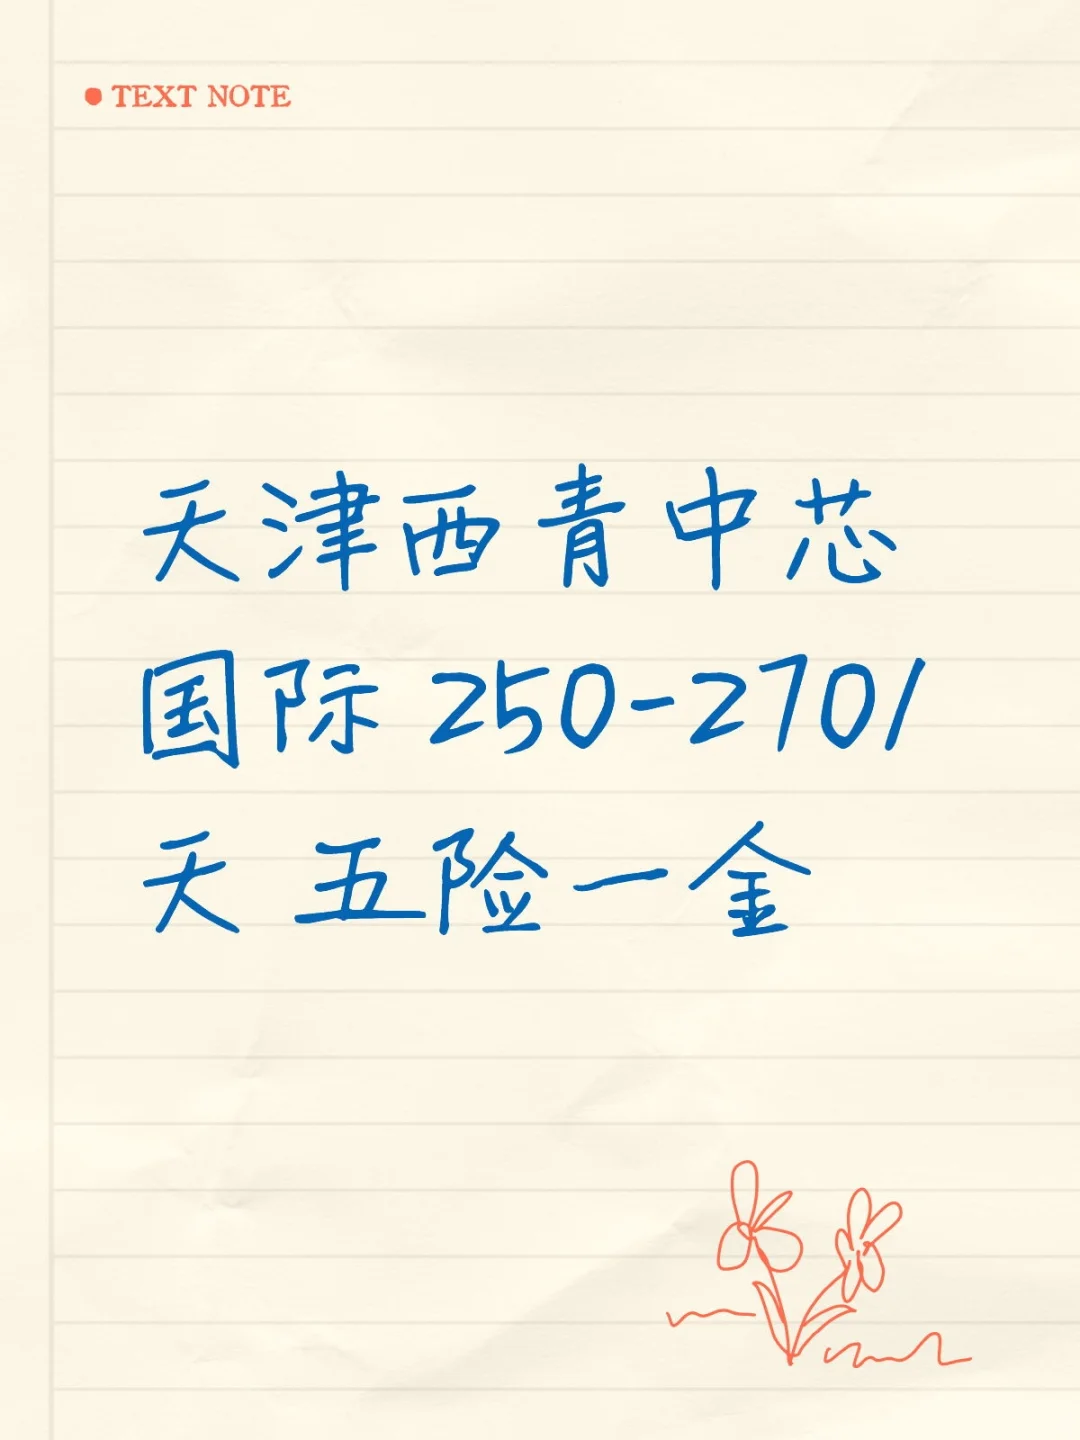 TEXT NOTE
天津西青中芯
国际 250-270/
天 五险一金